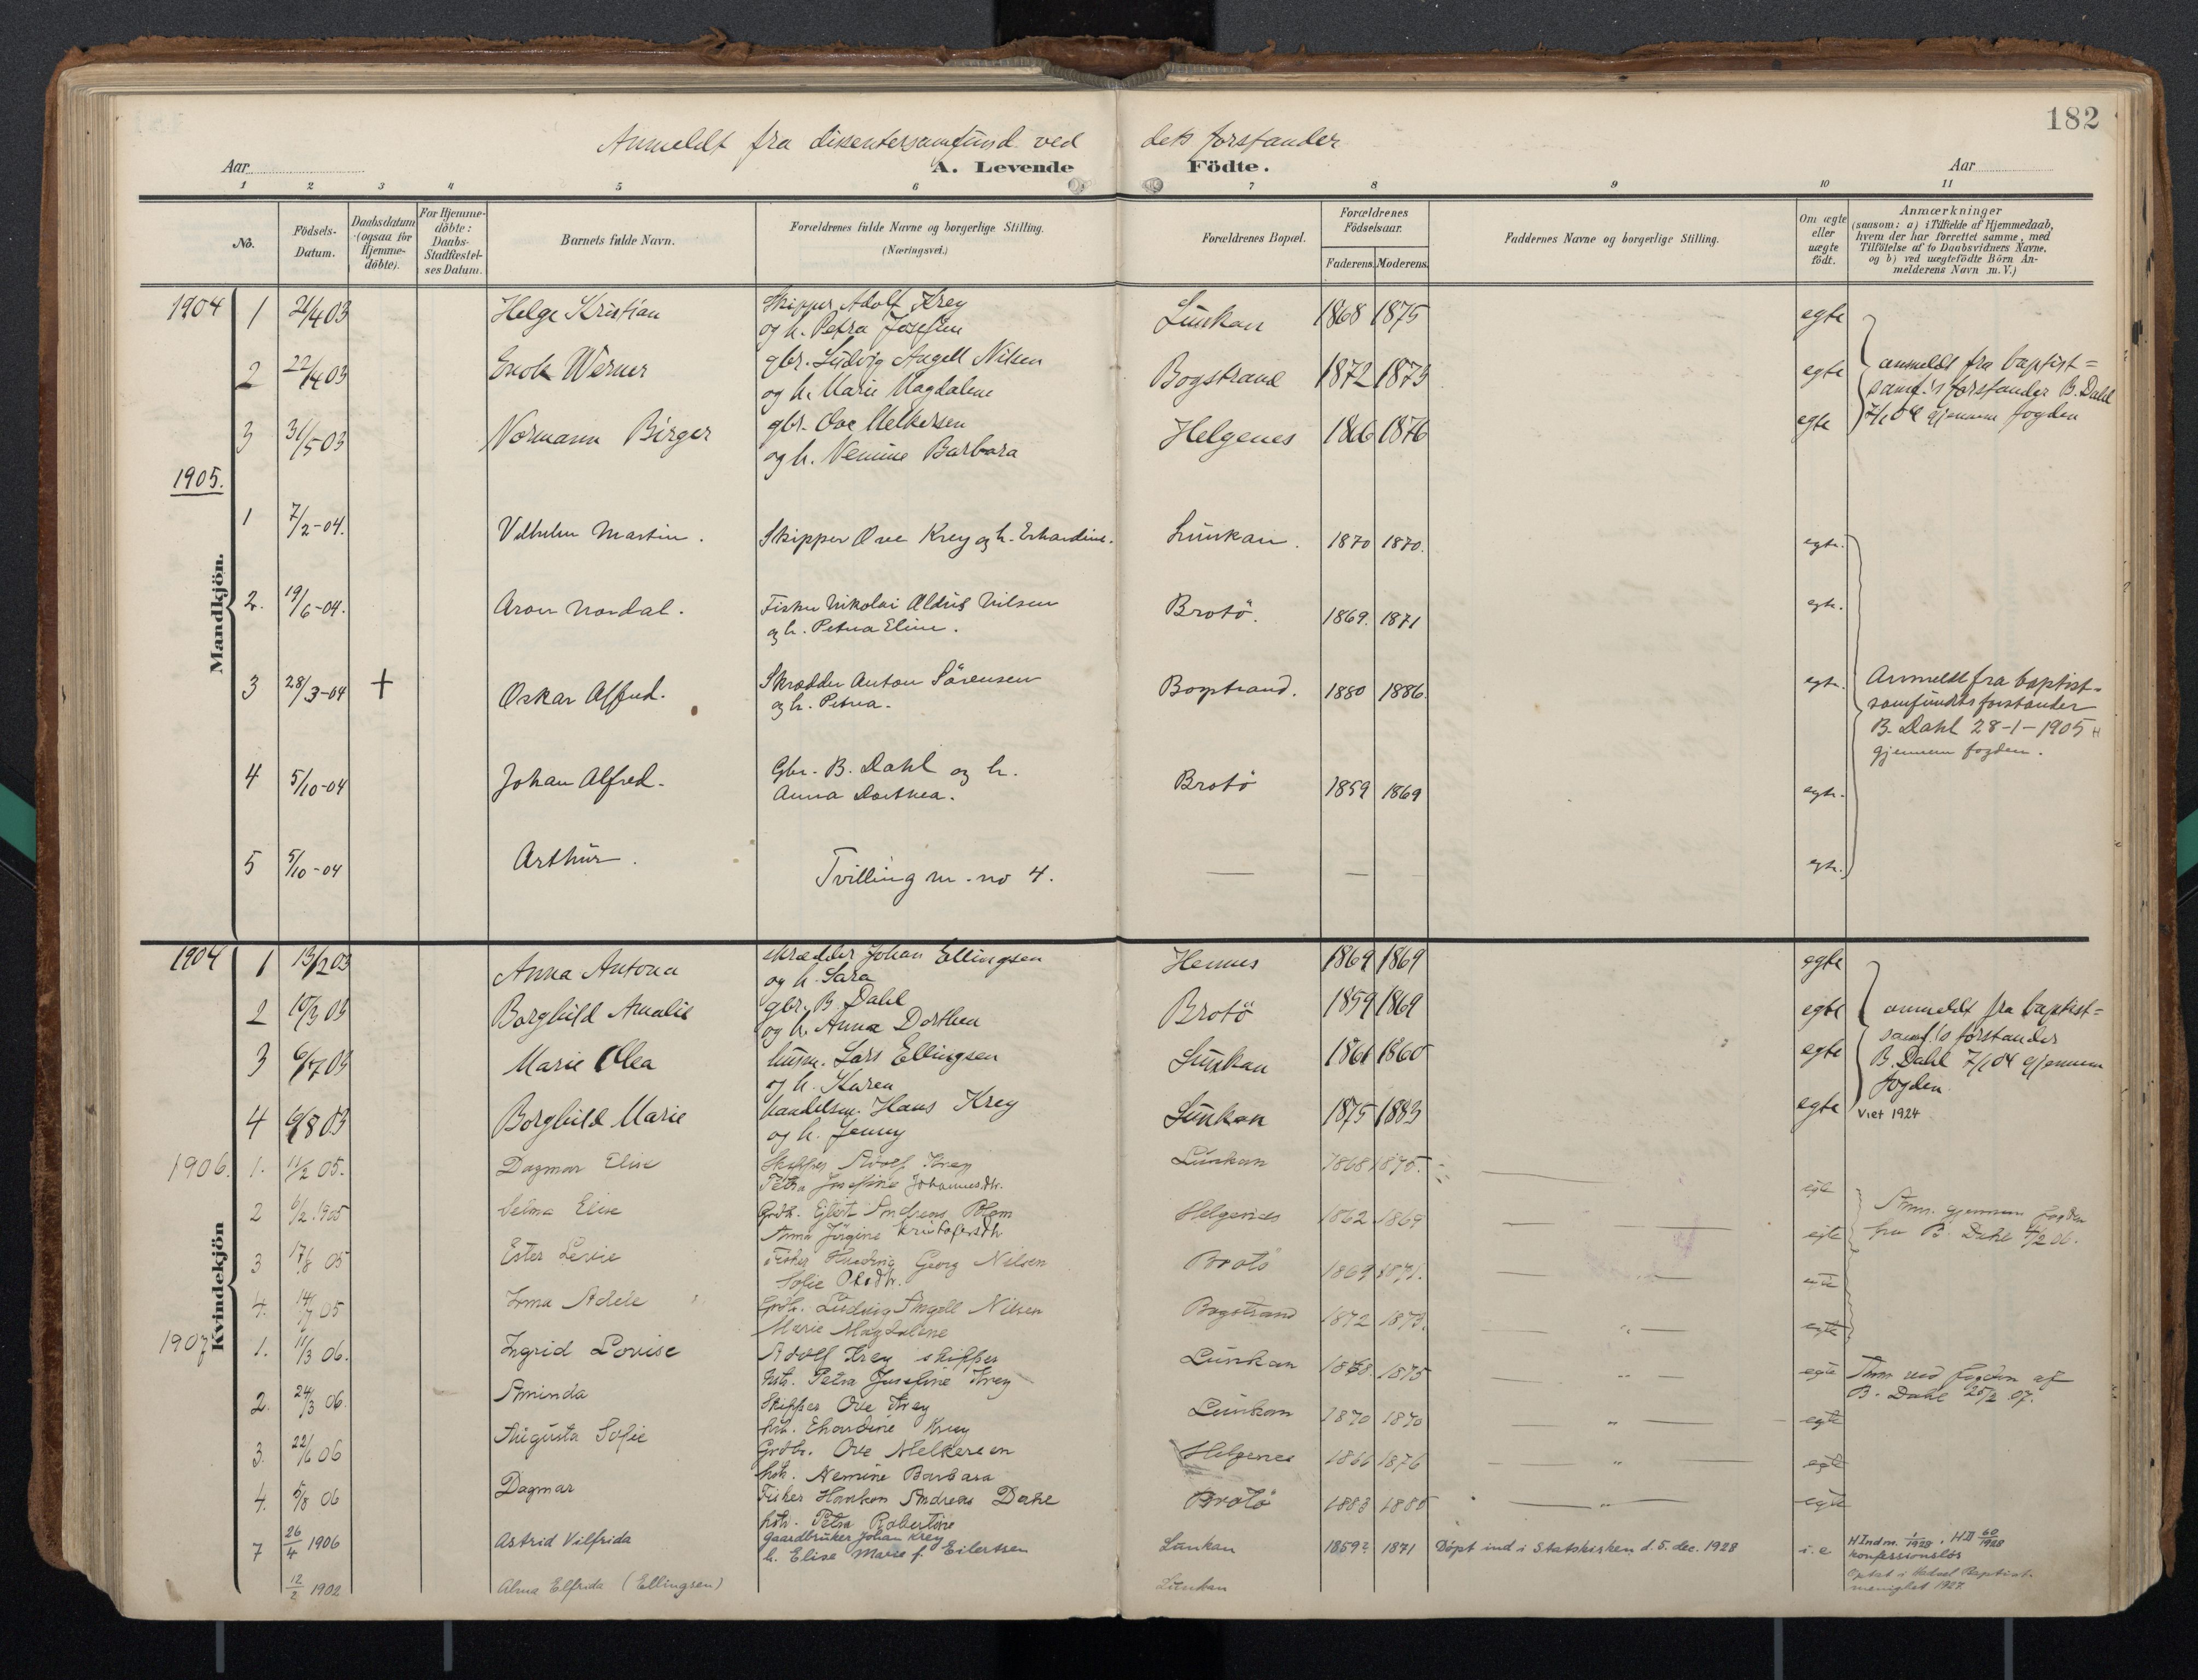 182
Anmeldt fra dissentersamfund ved dets forstander
Aar A. Levende Födte. Aar
1 2 3 4 5 6 7 8 9 10 11
No. Födsels-Datum. Daabsdatum (ogsaa for Hjemme-döbte). For Hjemme-döbte: Daabs-Stadfæstel-ses Datum. Barnets fulde Navn. Forældrenes fulde Navne og borgerlige Stilling. (Næringsvei.) Forældrenes Bopæl. Forældrenes Födselsaar. Faderens. Moderens. Faddernes Navne og borgerlige Stilling. Om ægte eller uægte födt. Anmærkninger (saasom: a) i Tilfælde af Hjemmedaab, hvem der har forrettet samme, med Tilföielse af to Daabsvidners Navne, og b) ved uægtefödte Börn An-melderens Navn m. V.)
Mandkjön.
1904 1 21/4 03 Helge Kristian Skipper Adolf Krey Lunkan 1868 1875 egte
og h. Petra Josefine
2 22/4 03 Enok Werner gbr. Ludvig Angell Nilsen Bogstrand 1872 1873 egte anmeldt fra baptist=
og h. Marie Magdalene samf.'s forstander B. Dahl
3 31/5 03 Normann Birger gbr. Ove Melkersen Helgenes 1866 1876 egte 7/1 04 gjennem fogden
og h. Nemine Barbara
1905.
1 7/2-04. Vilhelm Martin. Skipper Ove Krey og h. Erhardine. Lunkan. 1870 1870. egte.
2. 19/6-04. Aron Nordal. Fisker Nikolai Aldrig Nilsen Brotö. 1869. 1871 egte.
og h. Petra Eline.
3 28/3-04 + Oskar Alfred. Skrædder Anton Sörensen Bogstrand. 1880 1886. egte. Anmeldt fra baptist-
og h. Petra. samfundets forstander
B. Dahl 28-1-1905
gjennem fogden.
4 5/10-04 Johan Alfred. Gbr. B. Dahl og h. Brotö 1859 1869 egte.
Anna Dorthea.
5 5/10-04 Arthur. Tvilling m. no 4. — — — egte.
Kvindekjön
1904 1 13/2 03 Anna Antona skrædder Johan Ellingsen Hennes 1869 1869 egte
og h. Sara
2 10/3 03 Borghild Amalie gbr. B. Dahl Brotö 1859 1869 egte anmeldt fra baptist=
og h. Anna Dorthea samf.'s forstander
3 6/7 03 Marie Olea husm. Lars Ellingsen Lunkan 1861 1860 egte B. Dahl 7/1 04 gjennem
og h. Karen fogden.
4 6/8 03 Borghild Marie handelsm. Hans Krey Lunkan 1875 1883 egte Viet 1924
og h. Jenny
1906. 1. 11/2 05. Dagmar Elise Skipper Adolf Krey Lunkan 1868 1875.
Petra Josefine Johannesdtr.
2 6/2 1905 Selma Elise Grdb. Ejlert Andreas Blom Helgenes 1862 1869 egte Anm. gjennem fogden
Anna Jörgine Kristofersdtr fra B. Dahl 2 06.
3 17/8 05 Ester Levie Fisker Georg Nilsen Brotö 1869 1871. egte
Sofie Olsdtr.
4. 14/7 05 Irma Adele Grdb. Ludvig Angell Nilsen Bogstrand 1872 1873. egte
Marie Magdalene
1907 1. 11/3 06. Ingrid Lovise Adolf Krey skipper Lunkan 1868. 1875 egte
hstr. Petra Josefine Krey
2. 24/3 06. Aminda Skipper Ove Krey Lunkan 1870 1870 egte Anm ved fogden af
hstr. Ehardine Krey B. Dahl 25/2 07.
3. 22/6 06 Augusta Sofie Grdbr. Ove Melkersen Helgenes 1866 1876 egte
hstr. Nemine Barbara
4. 5/8 06 Dagmar Fisker Haakon Andreas Dahl Brotö 1883 1885 egte
hstr. Petra Robertine
7 26/4 1906 Astrid Vilfrida Gaardbruker Johan Krey Lunkan 1859? 1871 Döpt ind i Statskirken d. 5. dec. 1928 i.e H Ind m. 1/1928, H II 60/1928
h. Elise Marie f. Eilertsen konfessionslös
12/2 1902 Alma Elfrida (Ellingsen) Lunkan Optat i Hadsel Baptist-
menighet 1927.